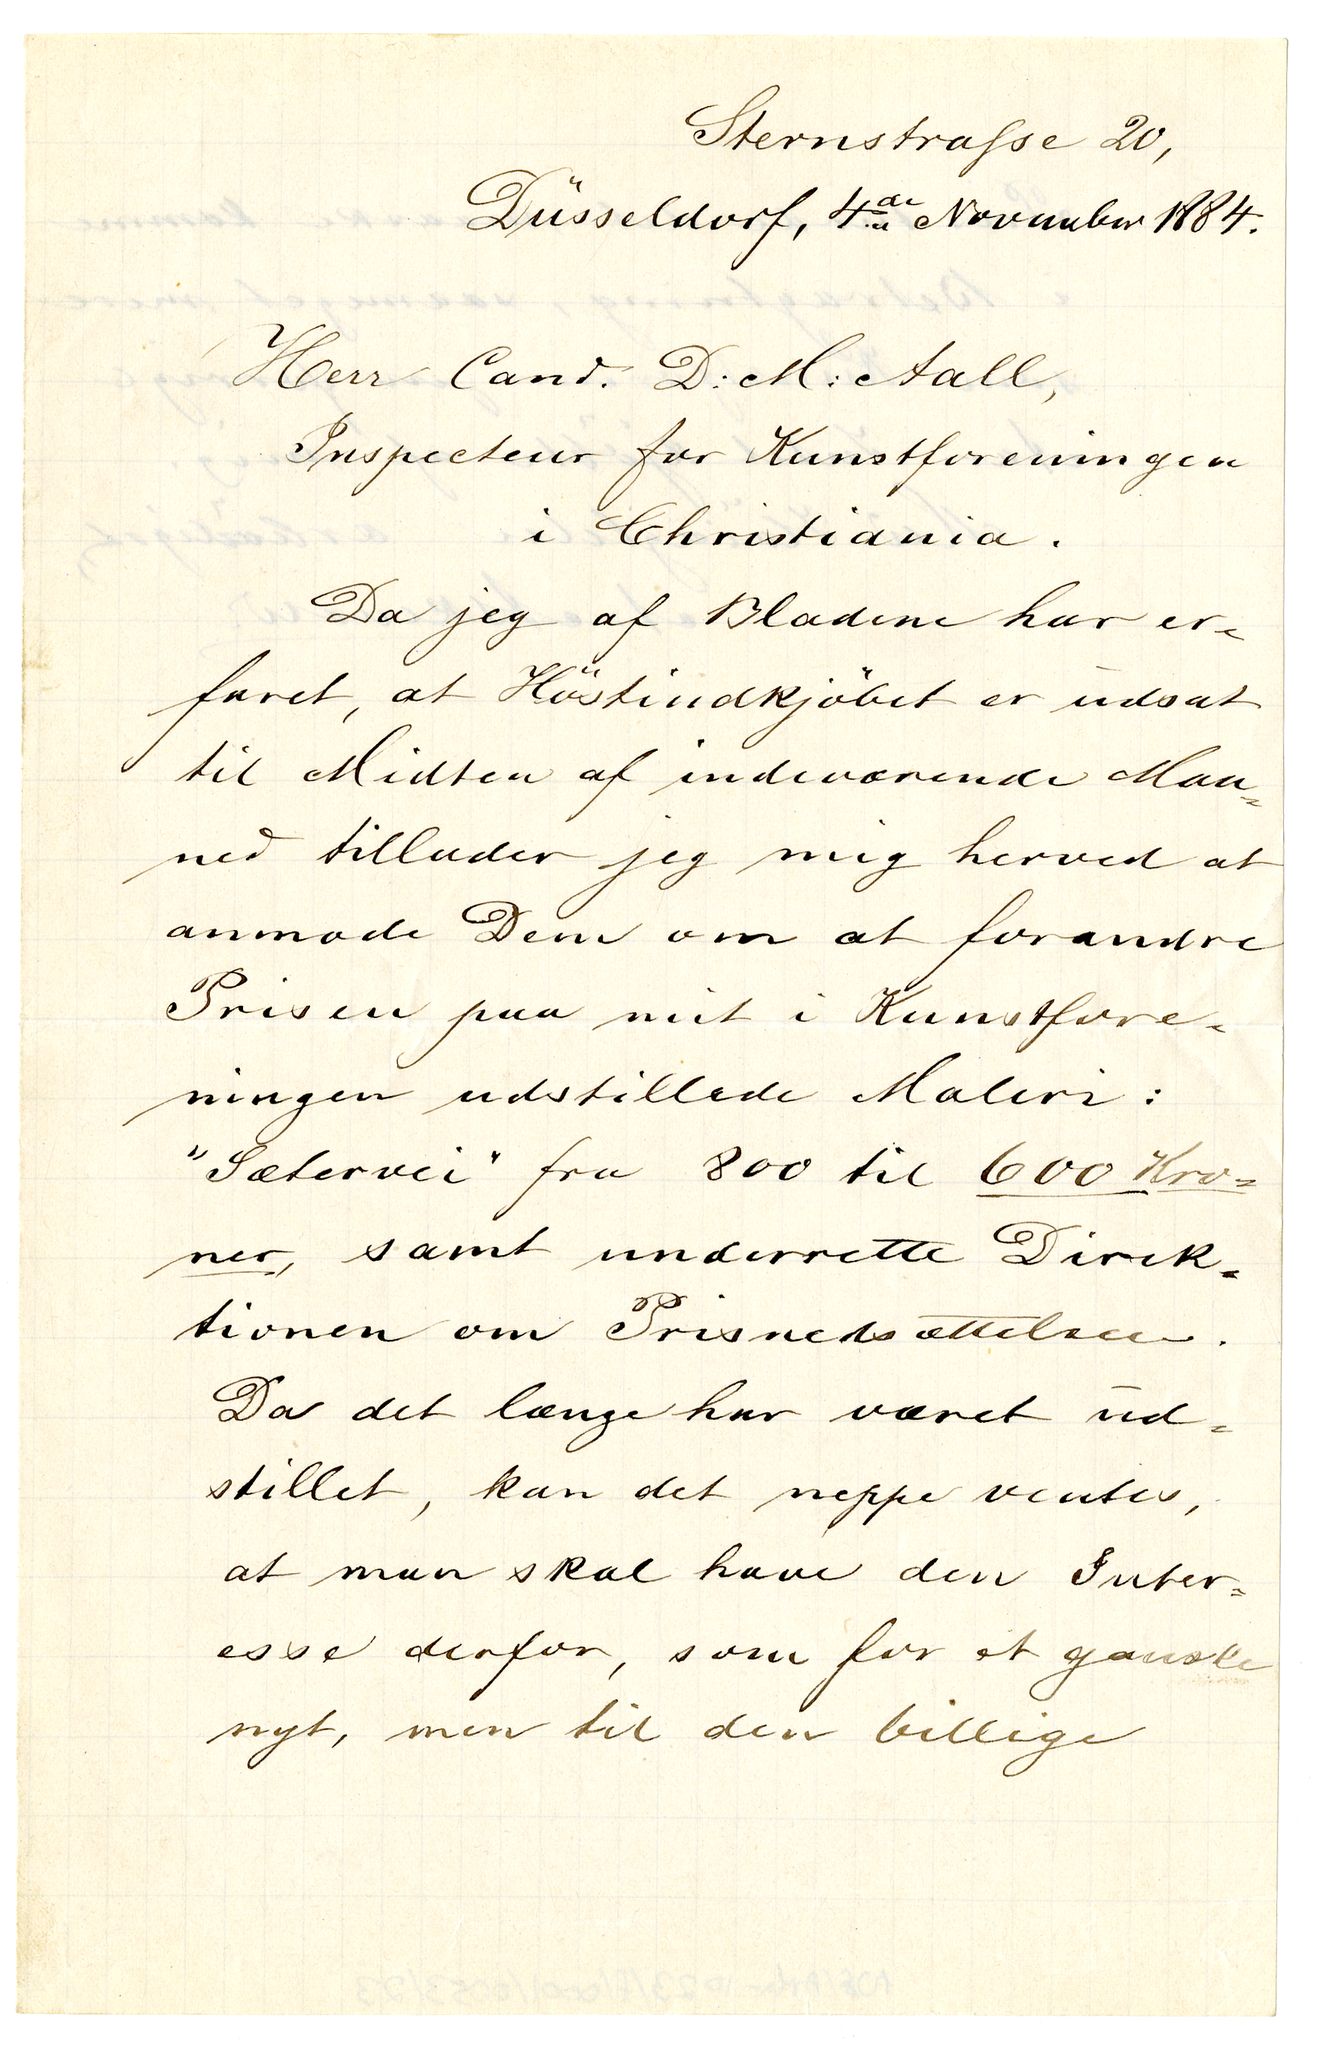 Sternstrasse 20,
Düsseldorf, 4de November 1884.
Herr Cand. D: M: Aall,
Inspecteur for Kunstforeningen
i Christiania.
Da jeg af Bladene har er-
faret, at Höstindkjöbet er udsat
til Midten af indeværende Maa-
ned tillader jeg mig herved at
anmode Dem om at forandre
Prisen paa mit i Kunstfore-
ningen udstillede Maleri:
"Sætervei" fra 800 til 600 Kro-
ner, samt underrette Direk-
tionen om Prisnedsættelsen.
Da det længe har været ud-
stillet, kan det neppe ventes,
at man skal have den Inter-
esse derfor, som for et ganske
nyt, men til den billige